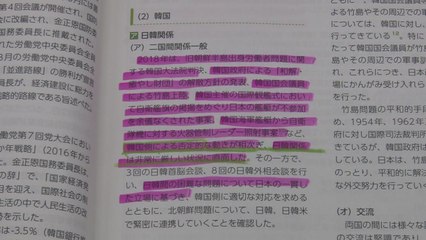 (2) 韓国
ア 日韓関係
(ア) 二国間関係一般
2018年は、旧朝鮮半島出身労働者問題に関
する韓国大法院判決、韓国政府による「和解・
癒やし財団」の解散方針の発表、韓国国会議員
による竹島上陸、韓国主催の国際観艦式におい
て自衛艦旗の掲揚をめぐり日本の艦艇が不参加
を余儀なくされた事案、韓国海軍艦艇から自衛
隊機に対する火器管制レーダー照射事案など、
韓国側による否定的な動きが相次ぎ、日韓関係
は非常に厳しい状況に直面した。その一方で、
3回の日韓首脳会談、8回の日韓外相会談を行
い、日韓間の困難な問題について日本の一貫し
た立場に基づき、韓国側に適切な対応を求める
とともに、北朝鮮問題について、日韓、日韓米
で緊密に連携していくことを確認した。
第4回会議が開催され、
おいて、金正恩国務委員
国務委員長に推戴された。
れた労働党中央委員会全
8月の労働党中央委員会
「並進路線」の勝利が宣
員長が、経済建設に総力
的路線」である旨述べた。
労働党第7回党大会におい
か年戦略」(2016年から
金正恩国務委員長
の辞」で、「国家経済発
員を迎え、国際社会の制
の中で人民生活の改
を示した。
は-3.5%(韓国銀行
による竹島
竹島やその
ついては、韓
島やその周
れ、これら
にかんがみ
竹島問題の
め、1954年、1962年
対し国際司法裁判所
ているが、韓
日本は、竹島
な外交努力を行ってい
(オ) 交流
両国の間には様々な
は緊固であり